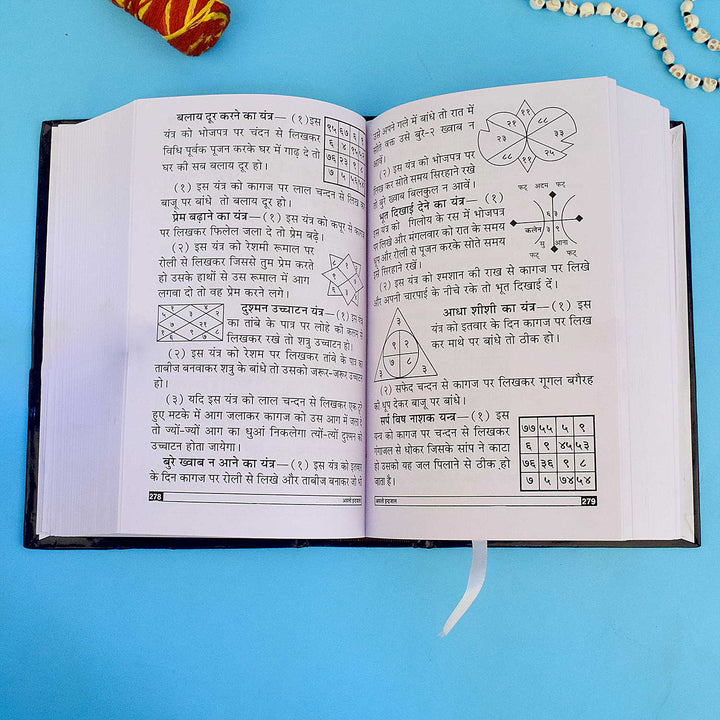 बलाय दूर करने का यंत्र—(१)इस
यंत्र को भोजपत्र पर चंदन से लिखकर
विधि पूर्वक पूजन करके घर में गाड़ दे तो
घर की सब बलाय दूर हो।
९५ ६७ ६ २
६ ४ १५
७६ २३ ९ ८
७ ५
(१) इस यंत्र को कागज पर लाल चन्दन से लिख कर
बाजू पर बांधे तो बलाय दूर हो।
प्रेम बढ़ाने का यंत्र—(१) इस यंत्र को कपूर से कागज
पर लिखकर फिलेल जला दे तो प्रेम बढ़े।
(२) इस यंत्र को रेशमी रूमाल पर
रोली से लिखकर जिससे तुम प्रेम करते
हो उसके हाथों से उस रूमाल में आग
लगवा दो तो वह प्रेम करने लगे।
दुश्मन उच्चाटन यंत्र—(१) इस यंत्र
का तांबे के पात्र पर लोहे की कलम से
लिखकर रखे तो शत्रु उच्चाटन हो।
(२) इस यंत्र को रेशम पर लिखकर तांबे के पात्र का
ताबीज बनवाकर शत्रु के बांधे तो उसको जरूर-जरूर उच्चाटन
हो।
(३) यदि इस यंत्र को लाल चन्दन से लिखकर एक टूटे
हुए मटके में आग जलाकर कागज को उस आग में जला दे
तो ज्यों-ज्यों आग का धुआं निकलेगा त्यों-त्यों दुश्मन को
उच्चाटन होता जायेगा।
बुरे ख्वाब न आने का यंत्र—(१) इस यंत्र को इतवार
के दिन कागज पर रोली से लिखे और ताबीज बनाकर जो भी
278
असली इन्द्रजाल
उसे अपने गले में बांधे तो रात में
सोते वक्त उसे बुरे-२ ख्वाब न
आवें।
(२) इस यंत्र को भोजपत्र पर
लिख कर सोते समय सिरहाने रखे
तो बुरे ख्वाब बिलकुल न आवें।
११
२१ ८८
२३ ३३
८८ २५
११
भूत दिखाई देने का यंत्र— (१)
इस यंत्र को गिलोय के रस में भोजपत्र
पर लिखे और मंगलवार को रात के समय
धूप और रोली से पूजन करके सोते समय
इसे सिरहाने रखें।
फट् अदम फट्
६ ३
कलेन ३ ९
यु आना
फट् फट्
(२) इस यंत्र को श्मशान की राख से कागज पर लिखे
और अपनी चारपाई के नीचे रके तो भूत दिखाई दें।
आधा शीशी का यंत्र— (१) इस
यंत्र को इतवार के दिन कागज पर लिख
कर माथे पर बांधे तो ठीक हो।
३
९ २
३ ७ ८ ३
(२) सफेद चन्दन से कागज पर लिखकर गूगल बगैरह
की धूप देकर बाजू पर बांधे।
सर्प विष नाशक यन्त्र—(१) इस
यन्त्र को कागज पर चन्दन से लिखकर
गंगाजल से धोकर जिसके सांप ने काटा
हो उसको यह जल पिलाने से ठीक हो
जाता है।
७७ ५५ ५ ९
६ ९ ४५ ५३
७६ ३६ ९ ८
७ ५ ७४ ५४
असली इन्द्रजाल
279